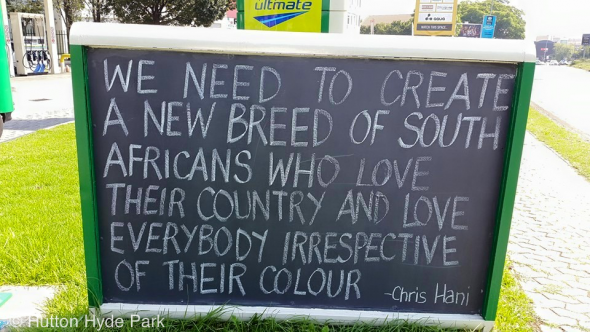 ultimate
WE NEED TO CREATE
A NEW BREED OF SOUTH
AFRICANS WHO LOVE
THEIR COUNTRY AND LOVE
EVERYBODY IRRESPECTIVE
OF THEIR COLOUR -Chris Hani
© Hutton Hyde Park